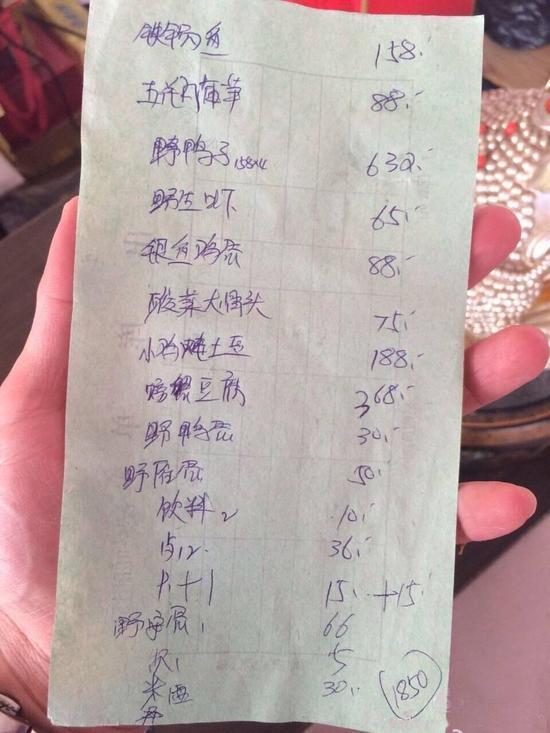 铁锅鱼 158.-
五花肉 88.-
野鸭子 158×4 632.-
野生 65.-
银鱼鸡蛋 88.-
酸菜大骨头 75.-
小鸡炖土豆 188.-
螃蟹豆腐 368.-
野鸭蛋 30.-
野 蛋 50.-
饮料2 10.-
12. 36.-
1+1 15.- +15.-
野 蛋1 66
1 5
米 30.- 1850